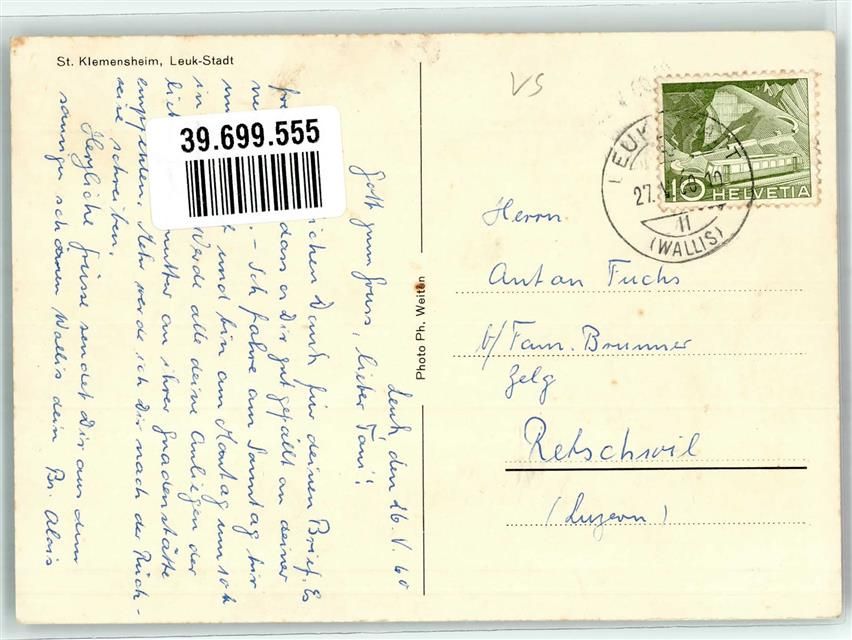 St. Klemensheim, Leuk-Stadt
VS
LEUK
27.V. 10
11
(WALLIS)
10 HELVETIA
39.699.555
Photo Ph. Weiten
Leuk den 26.V.60
Gott zum Gruss, lieber Toni!
lichen Dank für deinen Brief. Es
dass es Dir gut gefällt an deiner
- Ich fahre am Sonntag hin
und bin am Montag um 10h
in Werde alle deine Anliegen der
lich mutter an ihrer Gnadenstätte
empfehlen. Mehr werde ich Dir nach der Rück-
reise schreiben.
Herzliche Grüsse sendet Dir aus dem
sonnigen schönen Wallis dein Br. Alois
Herrn
Anton Fuchs
b/ Fam. Brunner
Zelg
Retschwil
(Luzern)